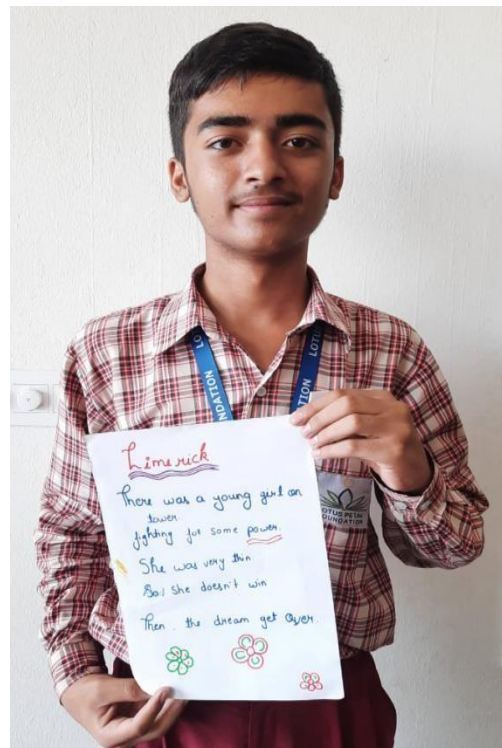 LOTUS
NDATION
LOT
Limerick
There was a young girl on
tower
fighting for some power.
She was very thin
So, she doesn't win
Then . the dream get Over.
LOTUS PETAL
FOUNDATION